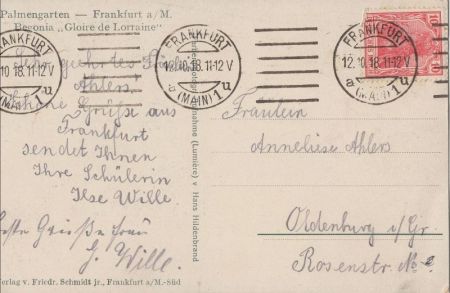 Palmengarten — Frankfurt a/M.
Begonia „Gloire de Lorraine".
FRANKFURT
12.10.18.11-12V
a (MAIN) 1 u
FRANKFURT
12.10.18.11-12V
a (MAIN) 1 u
FRANKFURT
12.10.18.11-12V
a (MAIN) 1 u
10
10
Sehr geehrtes Fräulein
Ahlers.
Schöne Grüße aus
Frankfurt
sendet Ihnen
Ihre Schülerin
Ilse Wille.
Beste Grüße Frau
Wille.
Verlag v. Friedr. Schmidt jr., Frankfurt a/M.-Süd
aufnahme (Lumière) v Hans Hildenbrand
Fräulein
Anneliese Ahlers
Oldenburg i/Gr.
Rosenstr. No